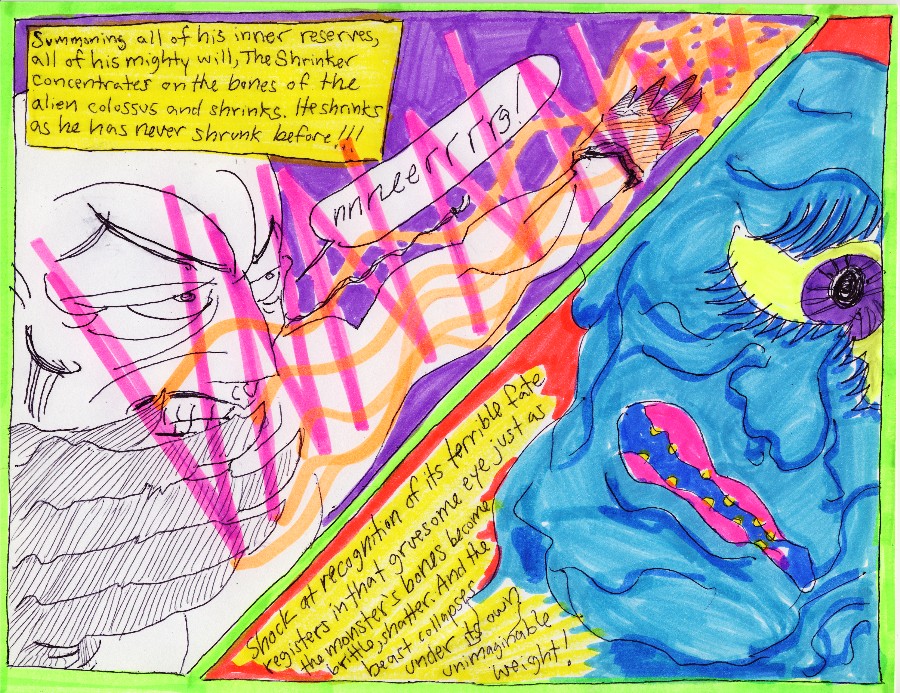 Summoning all of his inner reserves,
all of his mighty will, The Shrinker
concentrates on the bones of the
alien colossus and shrinks. He shrinks
as he has never shrunk before!!!
nnneerrrrg!
Shock at recognition of its terrible fate
registers in that gruesome eye just as
the monster's bones become
brittle, shatter. And the
beast collapses
under its own
unimaginable
weight!